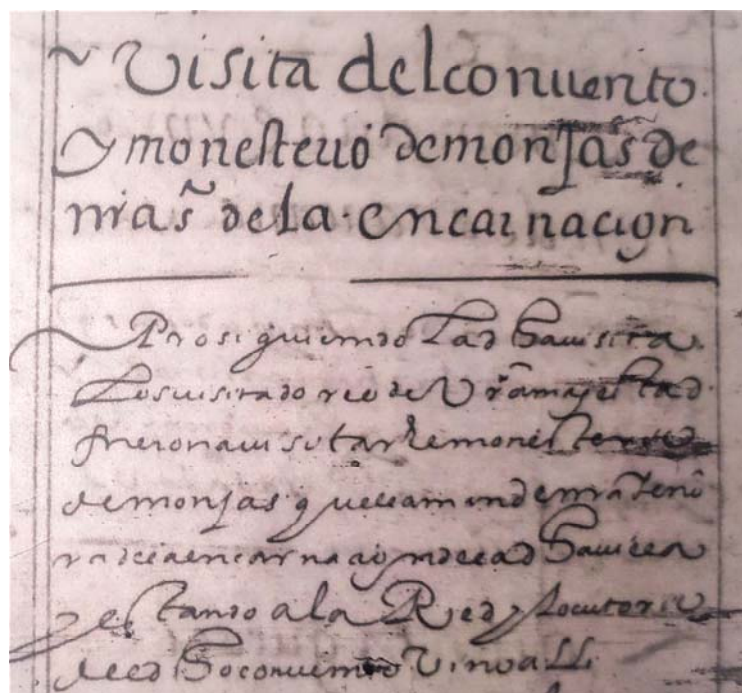 Visita del conuento
y monesterio de monjas de
nrā s.ª de la encarnacion
Prosiguiendo la dha visita
los visitadores de Vrā magestad
fueron a visitar el monesterio
de monjas que llaman de nrā seño
ra de la encarnacion de la dha villa
y estando a la Red y locutorio
del dho conuento vino alli